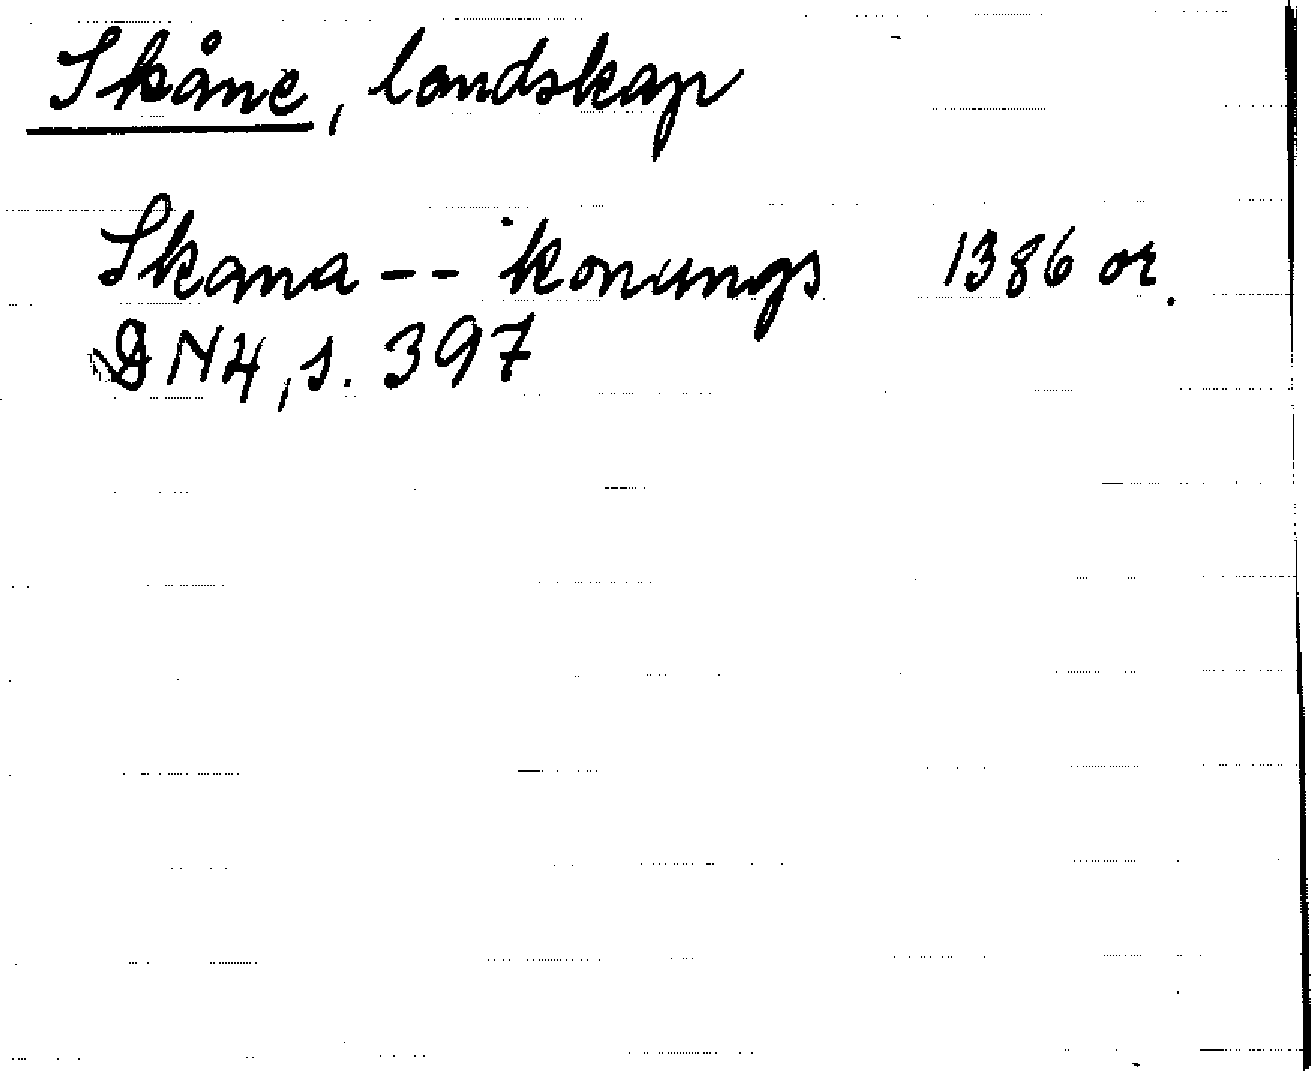 Skåne, landskap
Skana -- konungs 1386 or.
DN4, s. 397